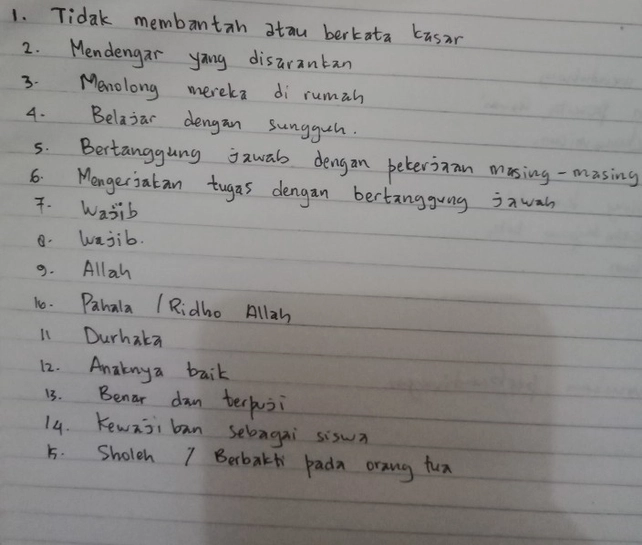 1. Tidak membantah atau berkata kasar
2. Mendengar yang disarankan
3. Menolong mereka di rumah
4. Belajar dengan sungguh.
5. Bertanggung jawab dengan pekerjaan masing-masing
6. Mengerjakan tugas dengan bertanggung jawah
7. Wajib
8. Wajib.
9. Allah
10. Pahala / Ridho Allah
11 Durhaka
12. Anaknya baik
13. Benar dan terpuji
14. Kewajiban sebagai siswa
15. Sholeh / Berbakti pada orang tua